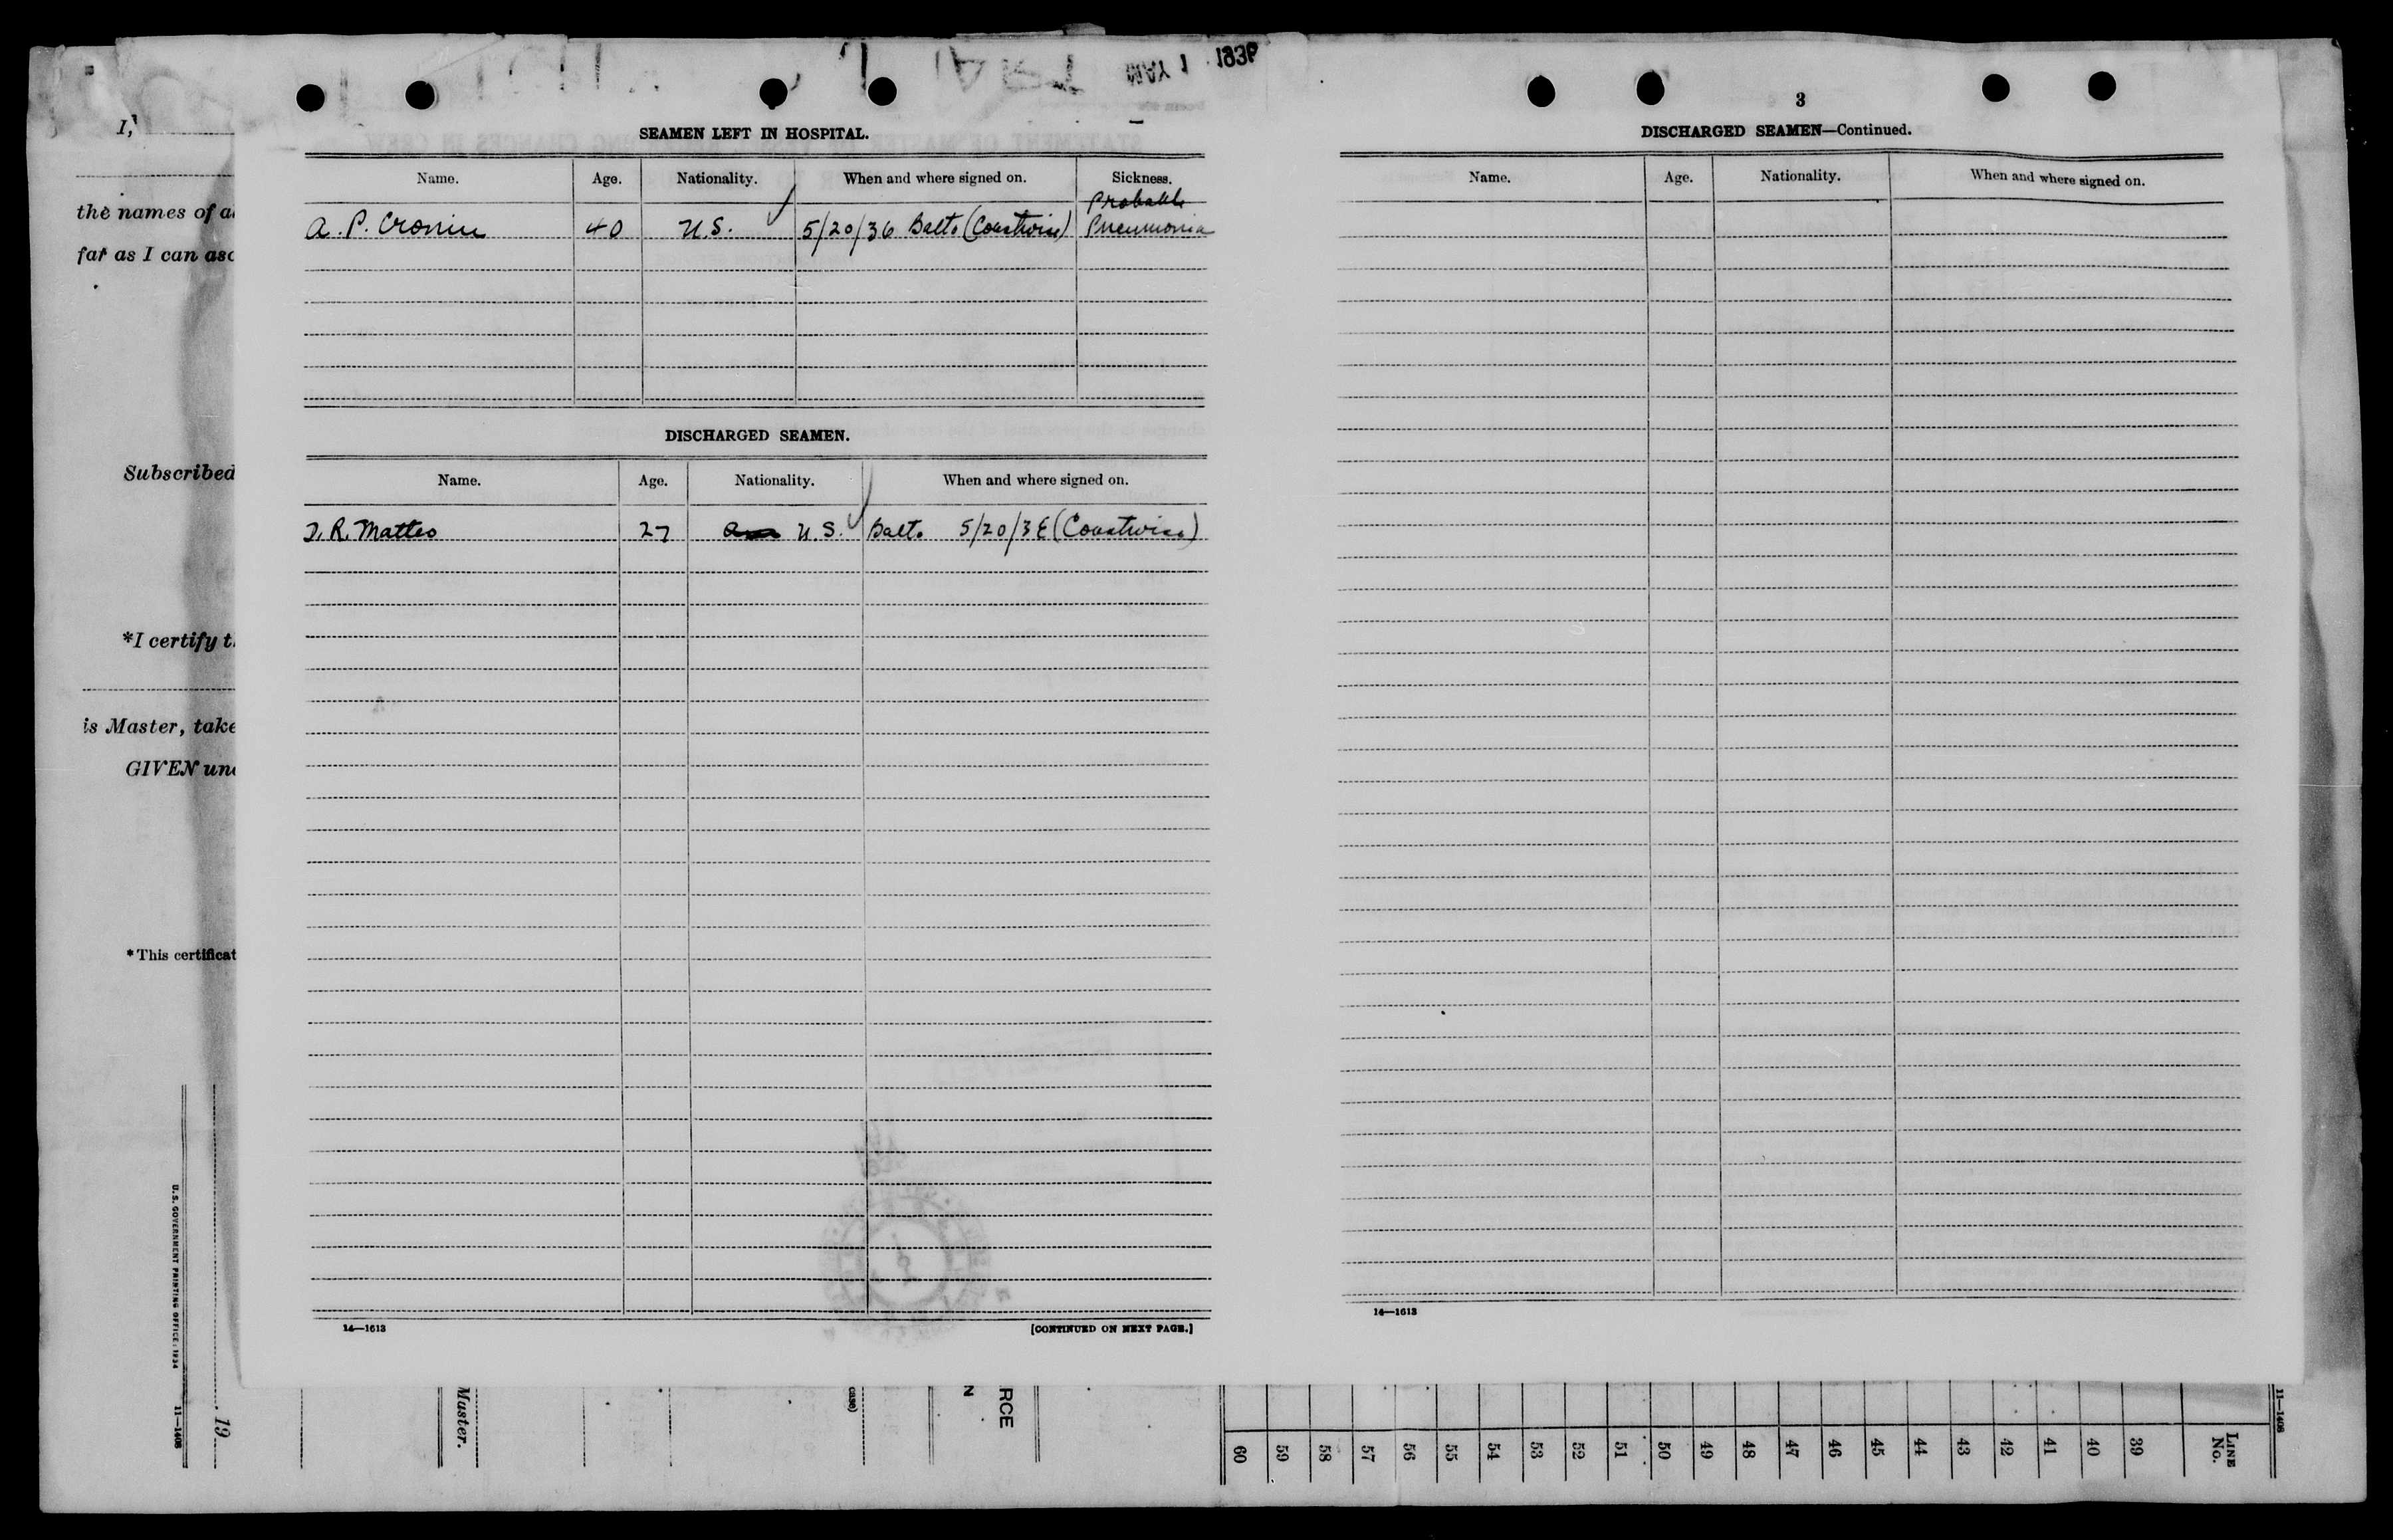 MAY 1 1936
I,
the names of
far as I can
Subscribed
*I certify
is Master, take
GIVEN
* This
SEAMEN LEFT IN HOSPITAL.
Name. Age. Nationality. When and where signed on. Sickness.
Probable
A. P. Cronin 40 U.S. 5/20/36 Balto (Coastwise) Pneumonia
DISCHARGED SEAMEN.
Name. Age. Nationality. When and where signed on.
T. R. Matteo 27 U.S. Balto. 5/20/36 (Coastwise)
14—1613
[CONTINUED ON NEXT PAGE.]
3
DISCHARGED SEAMEN—Continued.
Name. Age. Nationality. When and where signed on.
14—1613
U.S. GOVERNMENT PRINTING OFFICE: 1934 11—1408
19
Master.
case)
N
RCE
60 59 58 57 56 55 54 53 52 51 50 49 48 47 46 45 44 43 42 41 40 39
LINE
No.
11—1408